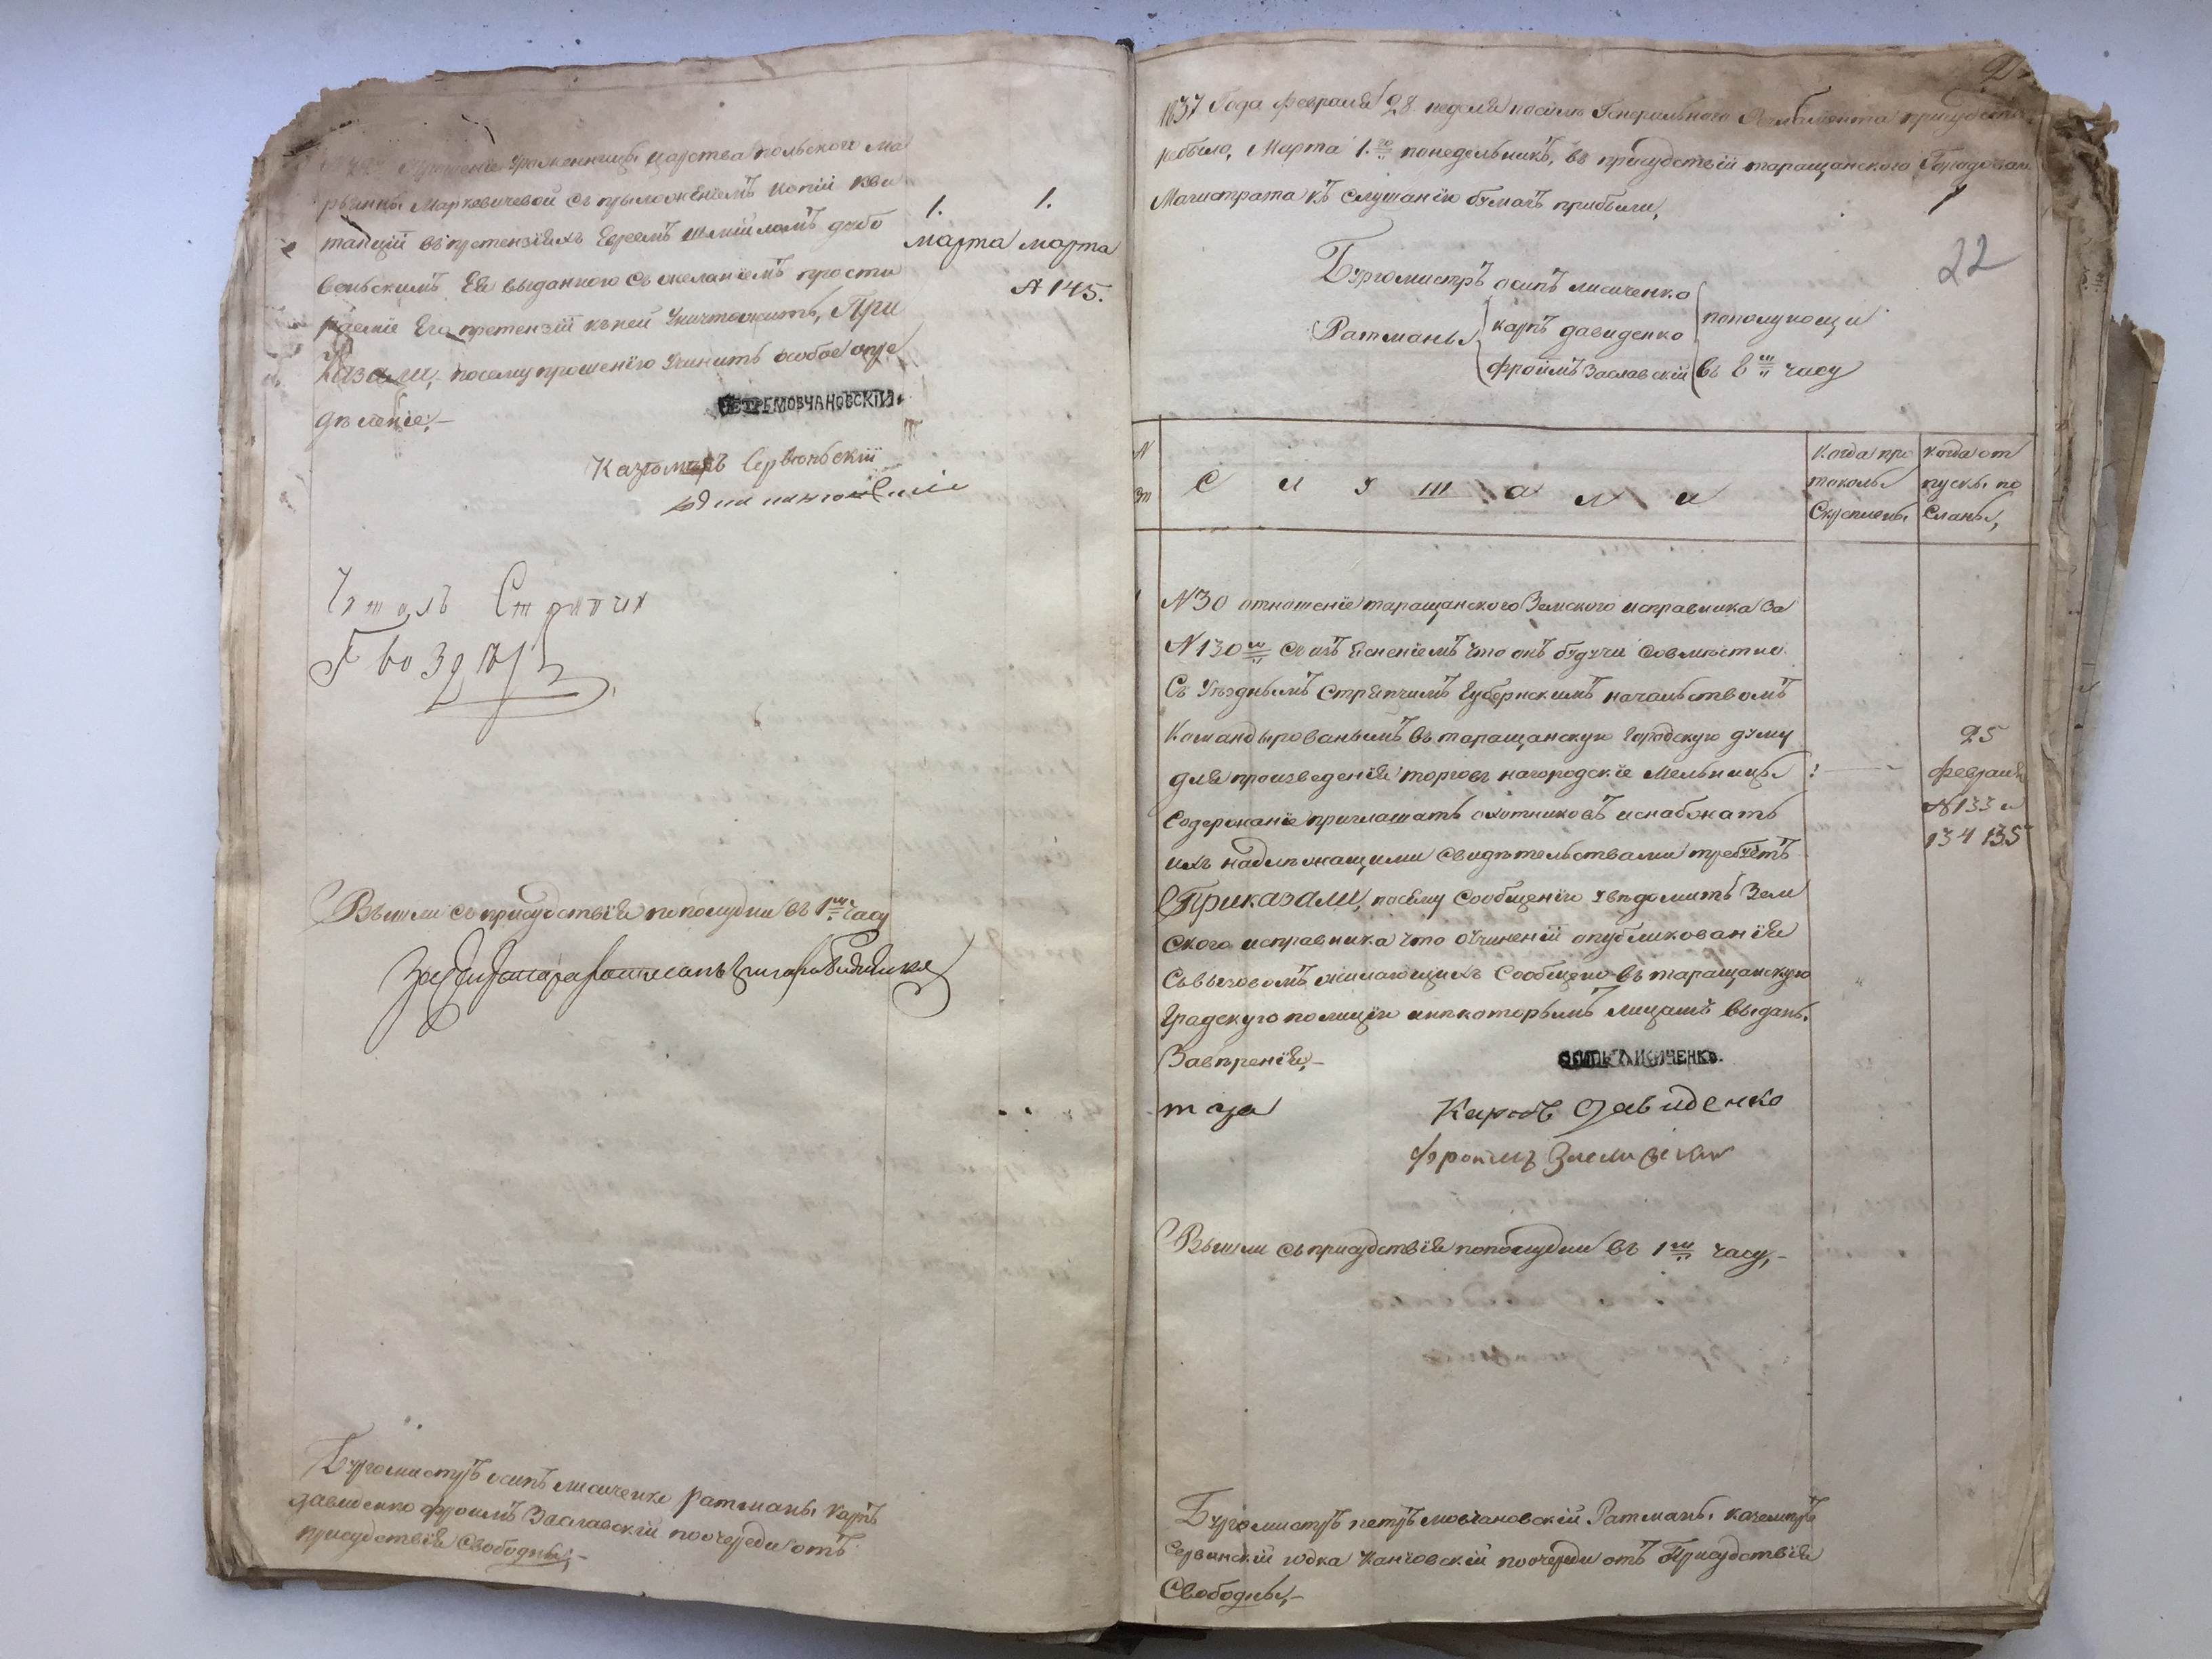 прошеніе уроженницы царства польского Ма
рьяны Маркевичевой съ прыложеніемъ копіи кви
танціи въ претензіяхъ Евреемъ шмуйломъ дубо
веньскимъ Ей выданного съ желаніемъ прости
раемые Его претензіи къ ней Уничтожить, При
казали, посему прошенію Учинить особое опре
дѣленіе;
1. 1.
марта марта
№ 145.
ПЕТРЪ МОВЧАНОВСКІЙ.
Казѣмиръ Сервѣньскій
Читалъ Стряпчий
Гвоздев
Вышли съ присудствія пополудни въ 1мъ часу
Бургомистръ осипъ лисиченко ратманы карпъ
давиденко фроимъ Заславскій поочереди отъ
присудствія Свободны;
1837 Года февраля 28 неделя посылъ Генерального Регламента присудствія
небыло, Марта 1.го понедельникъ, въ присудствіи таращанского Городоваго
Магистрата къ слушанію бумагъ прибыли,
22
Бургомистръ осипъ лисиченко
Ратманы карпъ давиденко
фроимъ Заславскій
пополуночи
въ 8мъ часу
№ эт
С л у ш а л и
Когда про
токолы
Скреплены
когда от
пуски по
сланы,
1
№ 30 отношеніе таращанского Земского исправника За
№ 130м съ изъясненіемъ что онъ будучи совместно
Съ Уѣзднымъ Стряпчимъ Губернскимъ начальствомъ
Командырованымъ въ таращанскую Городскую думу
для произведенія торговъ на городскіе мельницы
содержаніе приглашать охотниковъ и снабжать
ихъ надлежащими свидѣтельствами требуетъ
Приказали, посему Сообщенію Увѣдомить Зем
ского исправника что о учиненіи опубликованія
Съ вызовомъ желающихъ сообщено въ таращанскую
Градскую полицію и нѣкоторымъ лицамъ выданы
Завѣренія,
25
февраля
№ 133 и
134 135
ОСИПЪ ЛИСИЧЕНКО.
Карпъ Давиденко
фроимъ Заславскій
Вышли съ присудствія пополудни въ 1мъ часу,
Бургомистръ петръ мовчановскій Ратманы казѣмиръ
Сервинскій юдка Каніовскій поочереди отъ Присудствія
Свободны,